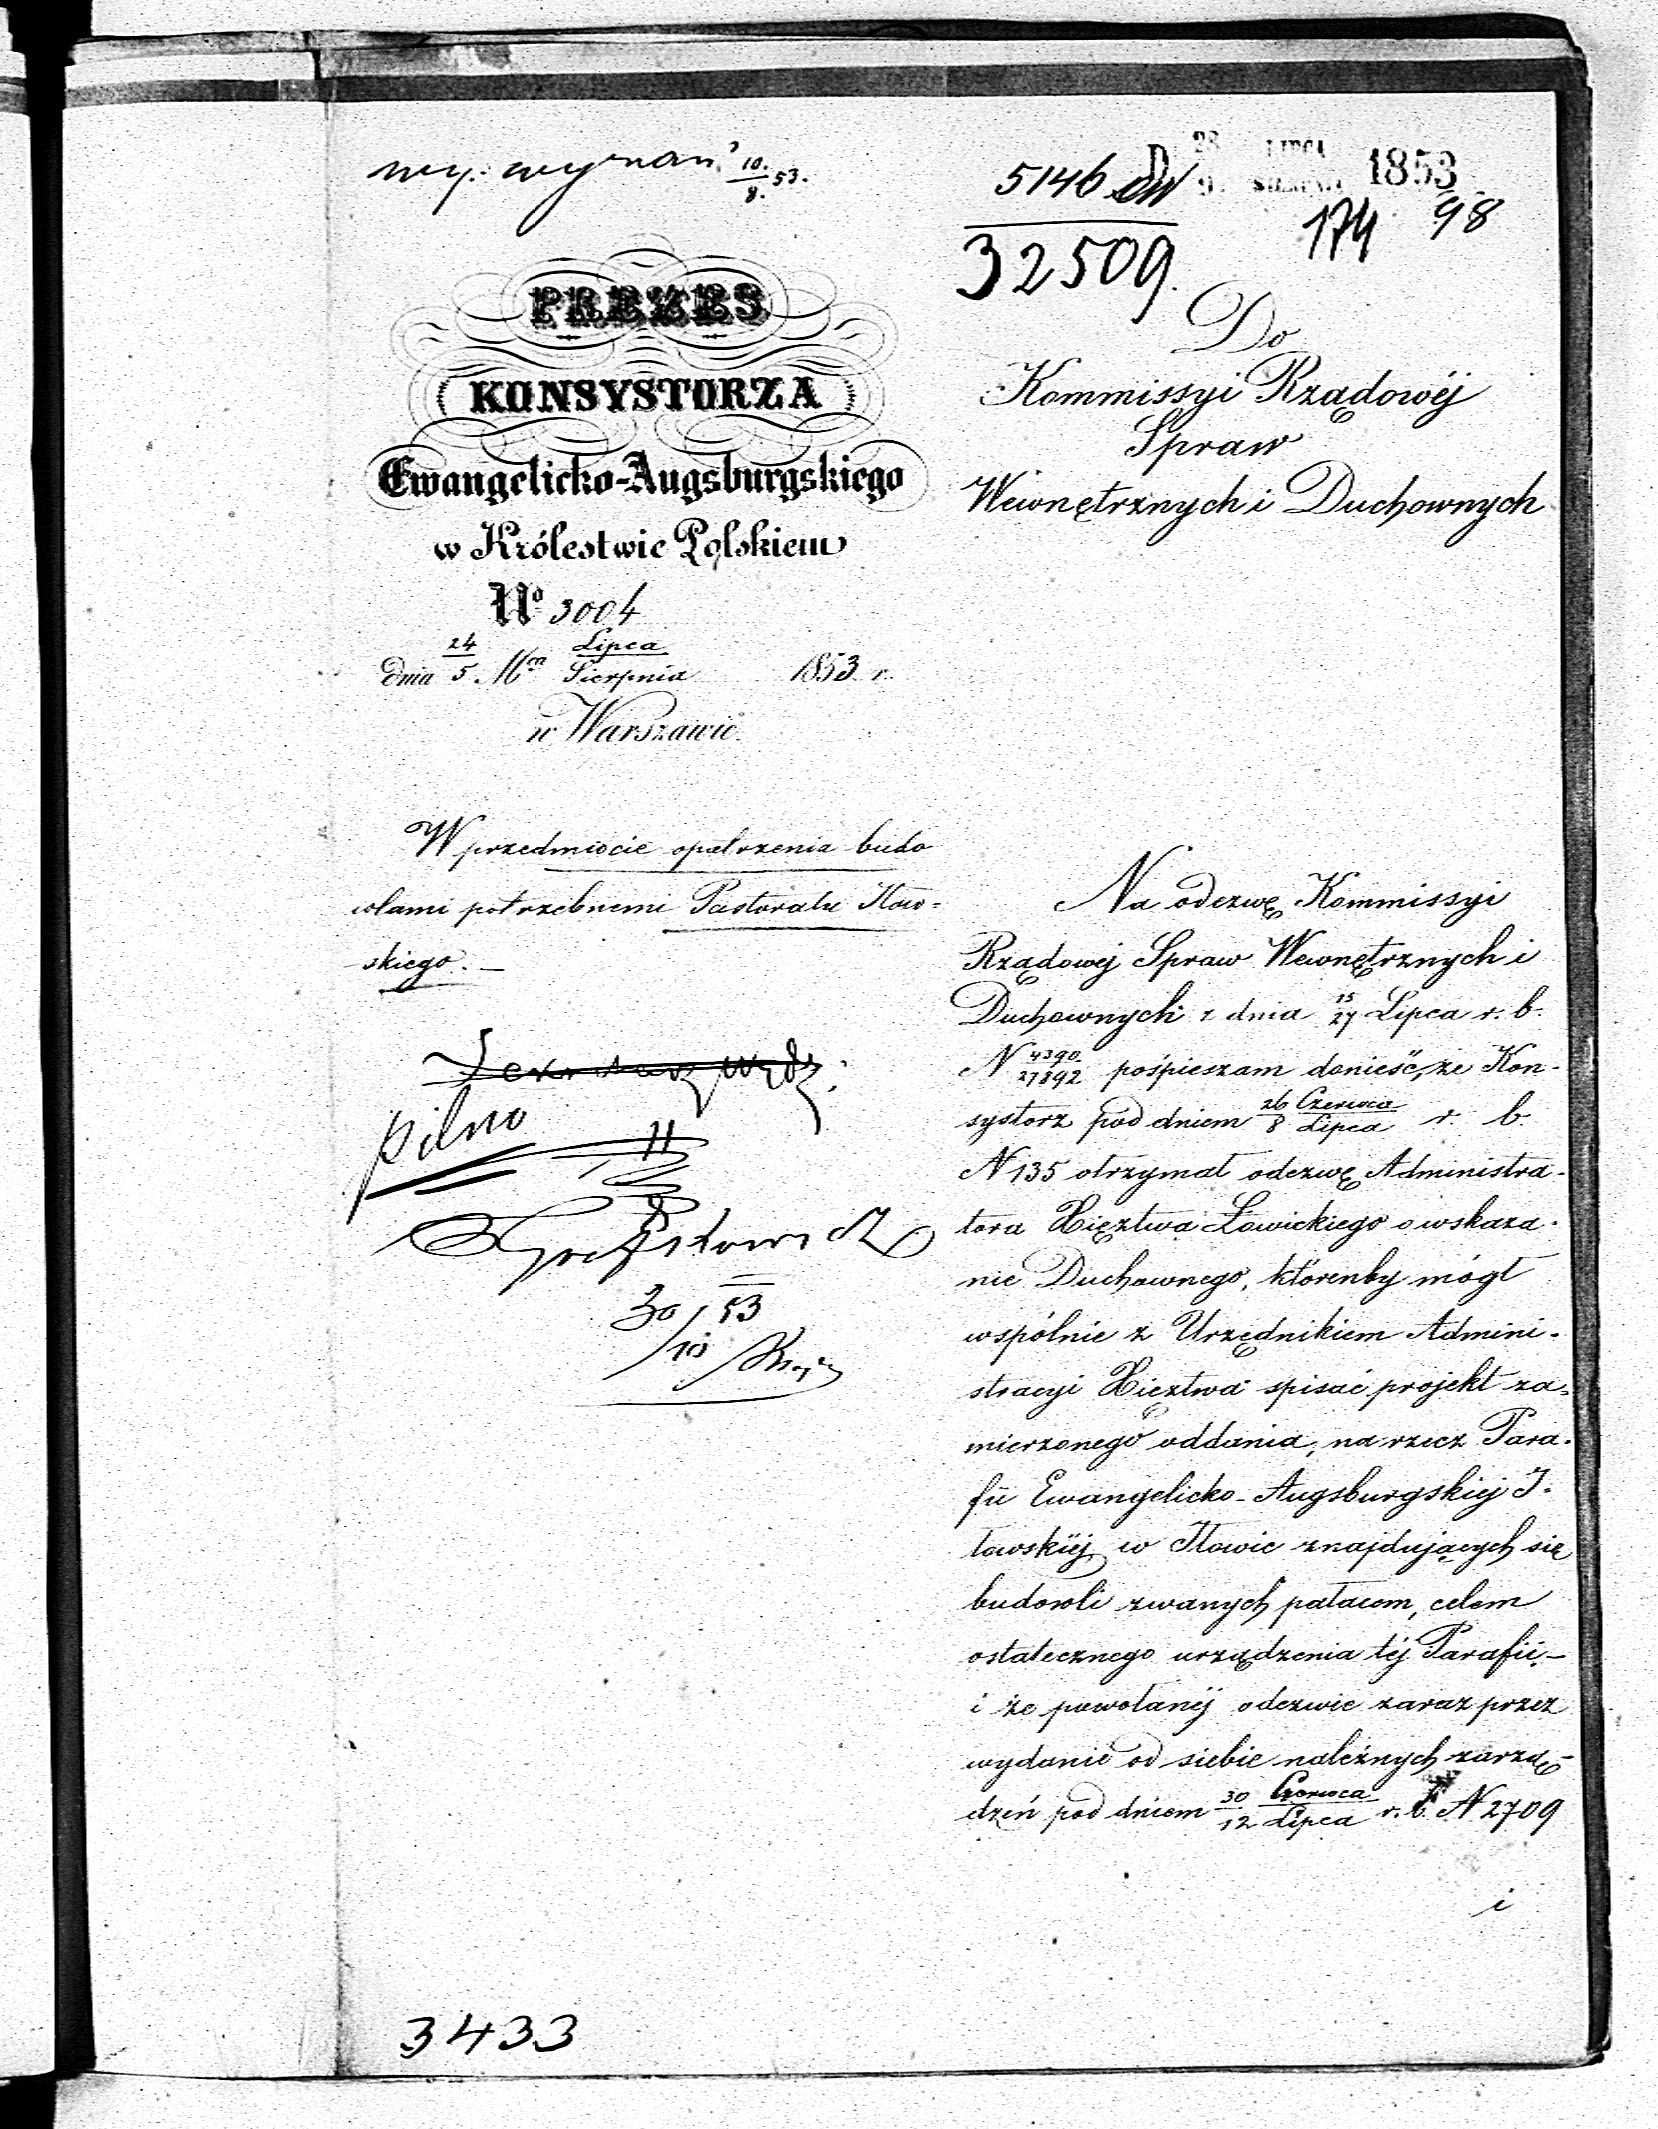 wy: wyznań 10/8. 53.
5146 DW
32509.
28 LIPCA
9 SIERPNIA 1853
174 98
PREZES
KONSYSTORZA
Ewangelicko-Augsburgskiego
w Królestwie Polskiem
No 3004
dnia 24/5 Mca Lipca/Sierpnia 1853 r.
w Warszawie
W przedmiocie opatrzenia budo
wlami potrzebnemi Pastoratu Iłow=
skiego. —
pilno
30/10 53
3433
Do
Kommissyi Rządowéj
Spraw
Wewnętrznych i Duchownych
Na odezwę Kommissyi
Rządowej Spraw Wewnętrznych i
Duchownych z dnia 15/27 Lipca r. b.
N 4390/27892 pośpieszam donieść, że Kon-
systorz pod dniem 26/8 Czerwca/Lipca r. b.
N 135 otrzymał odezwę Administra-
tora Xięztwa Łowickiego o wskaza-
nie Duchownego, którenby mógł
wspólnie z Urzędnikiem Admini-
stracyi Xięztwa spisać projekt za-
mierzonego oddania, na rzecz Para-
fii Ewangelicko-Augsburgskiej I-
łowskiéj w Iłowie znajdujących się
budowli zwanych pałacem, celem
ostatecznego urządzenia téj Parafii,—
i że powołanéj odezwie zaraz przez
wydanie od siebie należnych zarzą-
dzeń pod dniem 30/12 Czerwca/Lipca r. b. N 2709
i